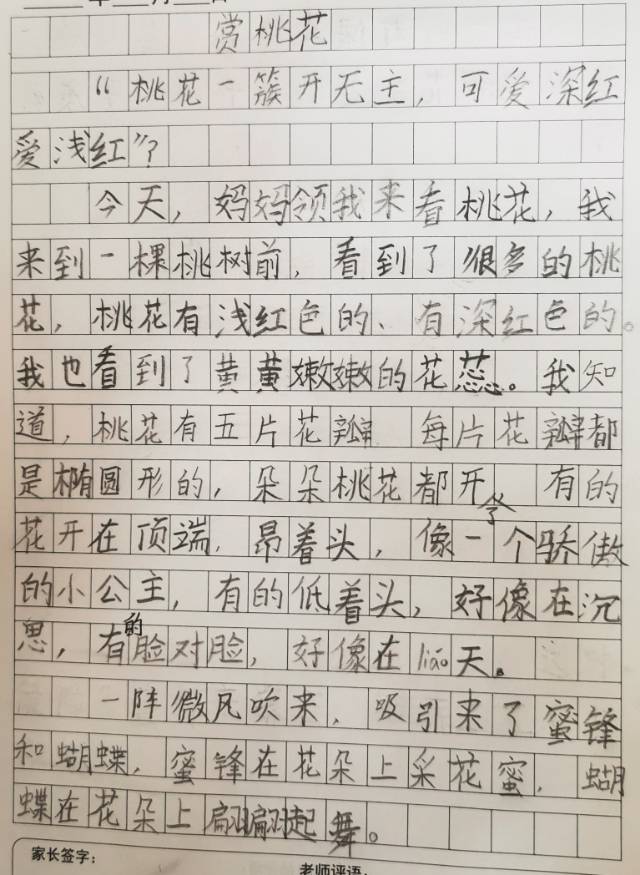 年 月 日
赏桃花
“桃花一簇开无主，可爱深红
爱浅红”？
今天，妈妈领我来看桃花，我
来到一棵桃树前，看到了很多的桃
花，桃花有浅红色的、有深红色的。
我也看到了黄黄嫩嫩的花蕊。我知
道，桃花有五片花瓣 每片花瓣都
是椭圆形的，朵朵桃花都开 有的
令
花开在顶端，昂着头，像一个骄傲
的小公主，有的低着头，好像在沉
思，有的脸对脸，好像在liáo天。
一阵微风吹来，吸引来了蜜锋
和蝴蝶，蜜锋在花朵上采花蜜，蝴
蝶在花朵上翩翩起舞。
家长签字：
老师评语：